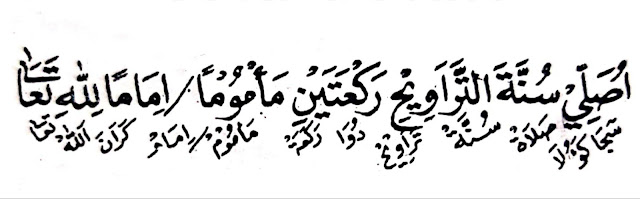 اُصَلِّيْ سُنَّةَ التَّرَاوِيْحِ رَكْعَتَيْنِ مَأْمُوْمًا/اِمَامًا لِلّٰهِ تَعَالٰى
سَهجَا كَوُلَا صَلَاةْ سُنَّةْ تَرَاوِيْحْ دُوَا رَكْعَةْ مَامُوْمْ/اِمَامْ كَرَانَ اللّٰهْ تَعَالٰى